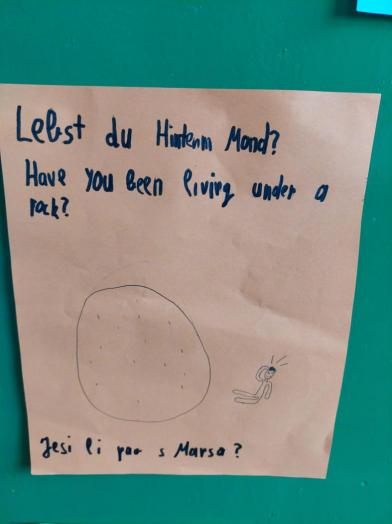 Lebst du Hinterm Mond?
Have you Been living under a
rock?
Jesi li pao s Marsa?